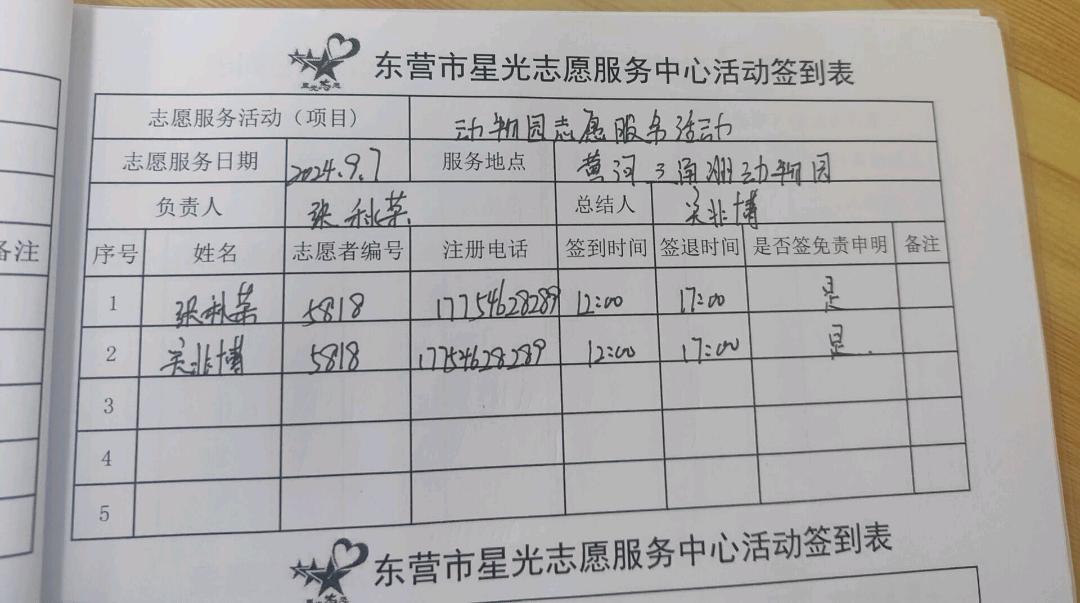 东营市星光志愿服务中心活动签到表
志愿服务活动（项目） 动物园志愿服务活动
志愿服务日期 2024.9.7 服务地点 黄河三角洲动物园
负责人 张秋菜 总结人 关非博
序号 姓名 志愿者编号 注册电话 签到时间 签退时间 是否签免责申明 备注
1 张秋菜 5818 17754628289 12:00 17:00 是
2 关非博 5818 17754628289 12:00 17:00 是
3
4
5
备注
东营市星光志愿服务中心活动签到表